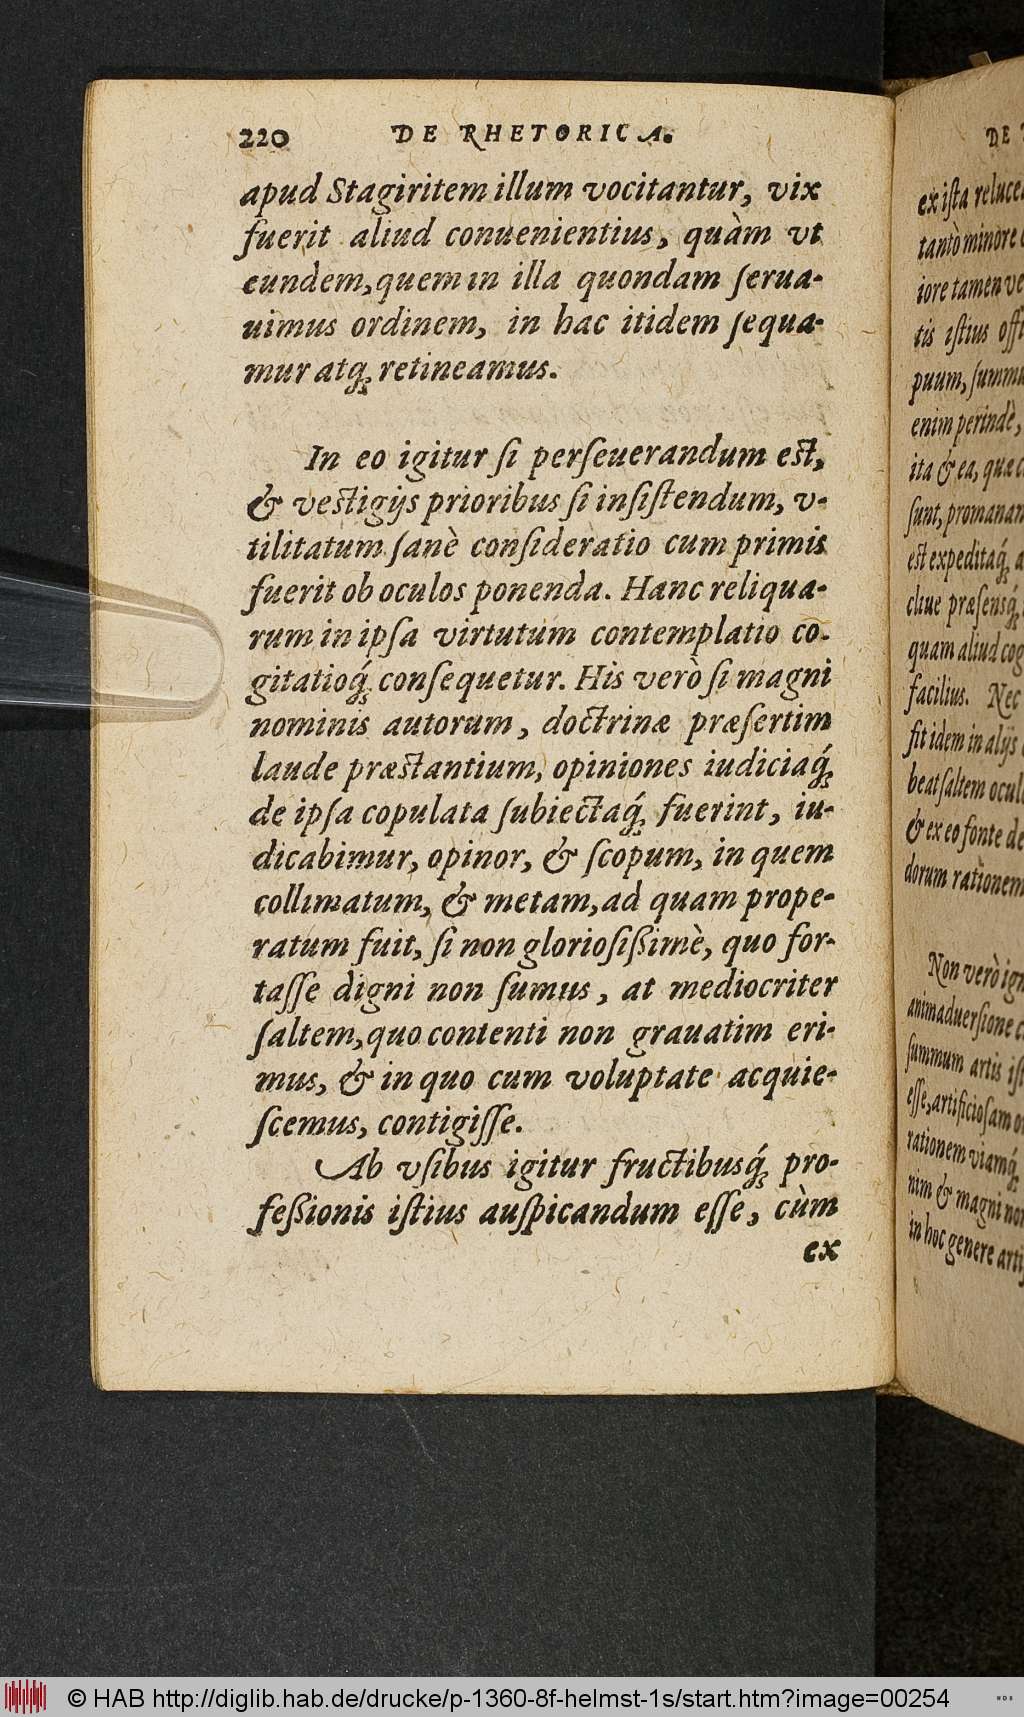 220 DE RHETORICA.
apud Stagiritem illum vocitantur, vix
fuerit aliud conuenientius, quàm vt
eundem, quem in illa quondam ſerua-
uimus ordinem, in hac itidem ſequa-
mur atq; retineamus.
In eo igitur ſi perſeuerandum est,
& vestigijs prioribus ſi inſiſtendum, v-
tilitatum ſanè conſideratio cum primis
fuerit ob oculos ponenda. Hanc reliqua-
rum in ipſa virtutum contemplatio co-
gitatioq́; conſequetur. His verò ſi magni
nominis autorum, doctrinæ præſertim
laude præstantium, opiniones iudiciaq́;
de ipſa copulata ſubiectaq́; fuerint, iu-
dicabimur, opinor, & ſcopum, in quem
collimatum, & metam, ad quam prope-
ratum fuit, ſi non glorioſißimè, quo for-
taſſe digni non ſumus, at mediocriter
ſaltem, quo contenti non grauatim eri-
mus, & in quo cum voluptate acquie-
ſcemus, contigiſſe.
Ab vſibus igitur fructibusq́; pro-
feßionis iſtius auſpicandum eſſe, cùm
ex
DE
ex iſta
tantò minore
iore tamen
tis iſtius
puum,
enim perindè,
ita & ea,
ſunt,
est expeditaq́;
clue præſensq́;
quam aliud
facilius. Nec
fit idem in alijs
beat ſaltem
& ex eo fonte
dorum rationem
Non verò
animaduerſione
ſummum artis
eſſe, artificioſam
rationem viamq́;
nim & magni
in hoc genere
© HAB http://diglib.hab.de/drucke/p-1360-8f-helmst-1s/start.htm?image=00254